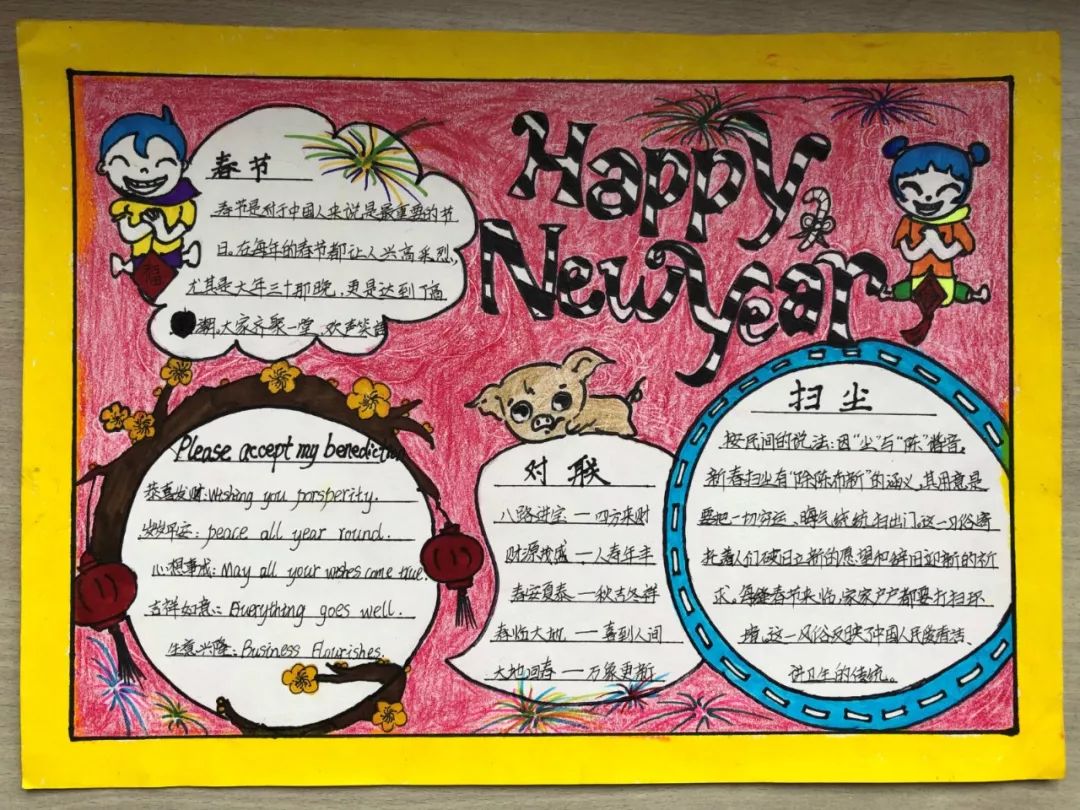 Happy
New Year
春节
春节是对于中国人来说是最重要的节
日。在每年的春节都让人兴高采烈,
尤其是大年三十那晚,更是达到了高
潮,大家齐聚一堂,欢声笑语
福
Please accept my benediction
恭喜发财:Wishing you porsperity.
岁岁平安:peace all year round.
心想事成:May all your wishes come true.
吉祥如意:Everything goes well.
生意兴隆:Business Flourishes.
对联
八路进宝一四方来财
财源茂盛一人寿年丰
春安夏泰一秋吉冬祥
春临大地一喜到人间
大地回春一万象更新
扫尘
按民间的说法:因"尘"与"陈"谐音,
新春扫尘有"除陈布新"的涵义,其用意是
要把一切穷运、晦气统统扫出门。这一习俗寄
托着人们破旧立新的愿望和辞旧迎新的祈
求。每逢春节来临,家家户户都要打扫环
境,这一风俗反映了中国人民爱清洁、
讲卫生的传统。